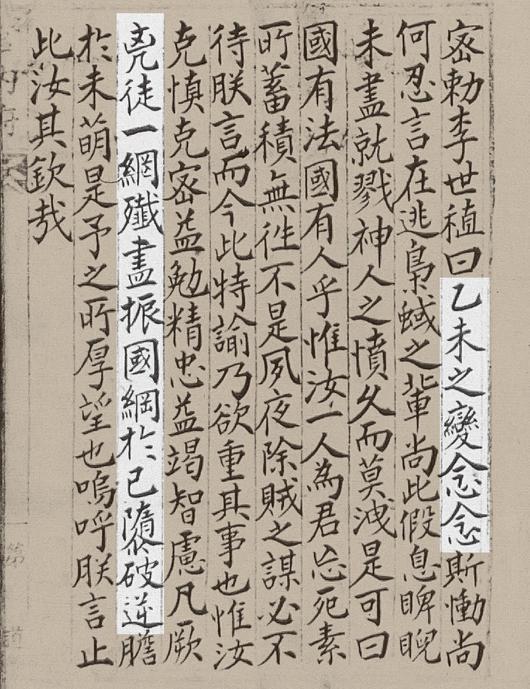 密勅李世稙曰乙未之變念念斯慟尚
何忍言在逃梟蜮之輩尚此假息睥睨
未盡就戮神人之憤久而莫洩是可曰
國有法國有人乎惟汝一人為君忘死素
所蓄積無徃不是夙夜除賊之謀必不
待朕言而今此特諭乃欲重其事也惟汝
克慎克密益勉精忠益竭智慮凡厥
兇徒一網殲盡振國綱於已隳破逆膽
於未萌是予之所厚望也嗚呼朕言止
此汝其欽哉